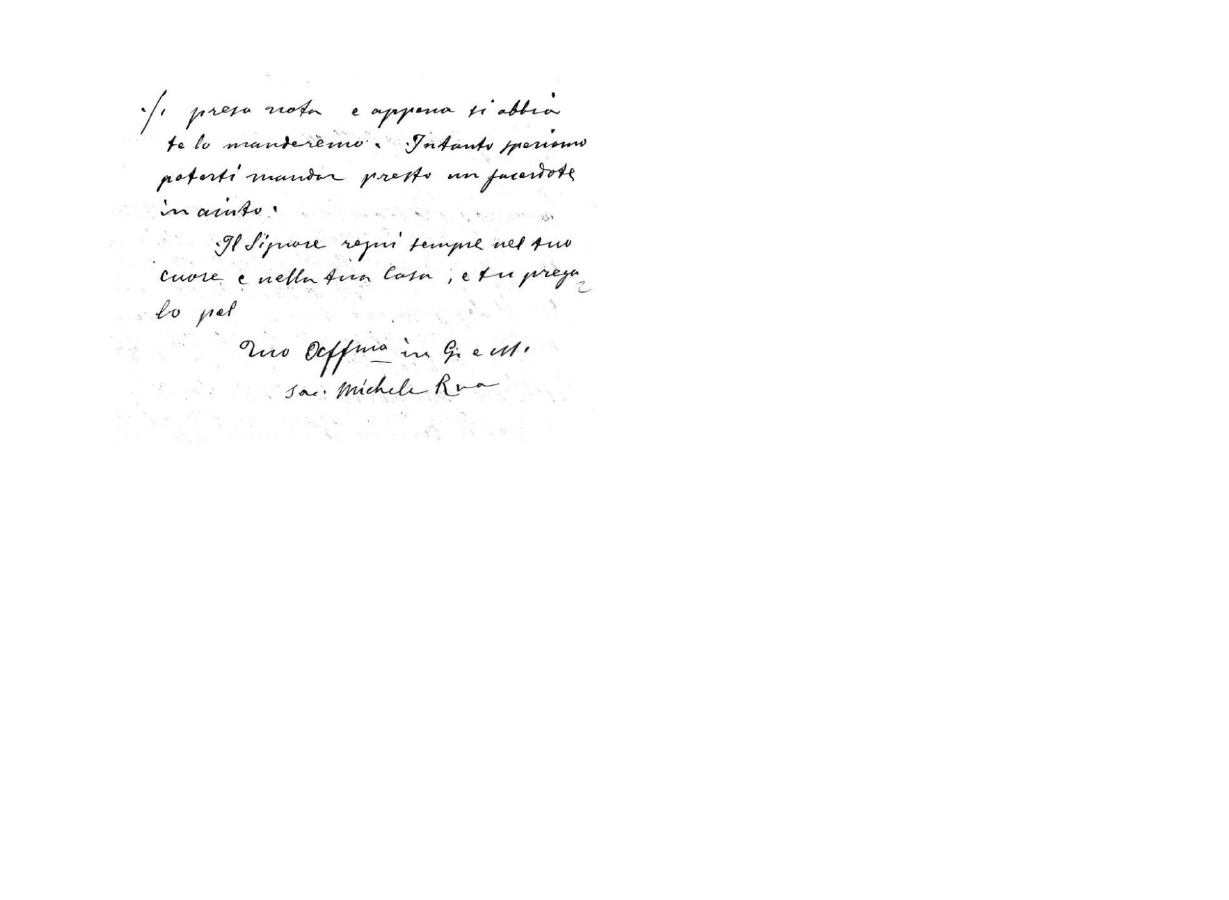 ./. presa nota e appena si abbia
te lo manderemo. Intanto speriamo
poterti mandar presto un sacerdote
in aiuto.
Il Signore regni sempre nel tuo
cuore e nella tua Casa, e tu prega
lo pel
Tuo Aff.mo in G. e M.
Sac. Michele Rua